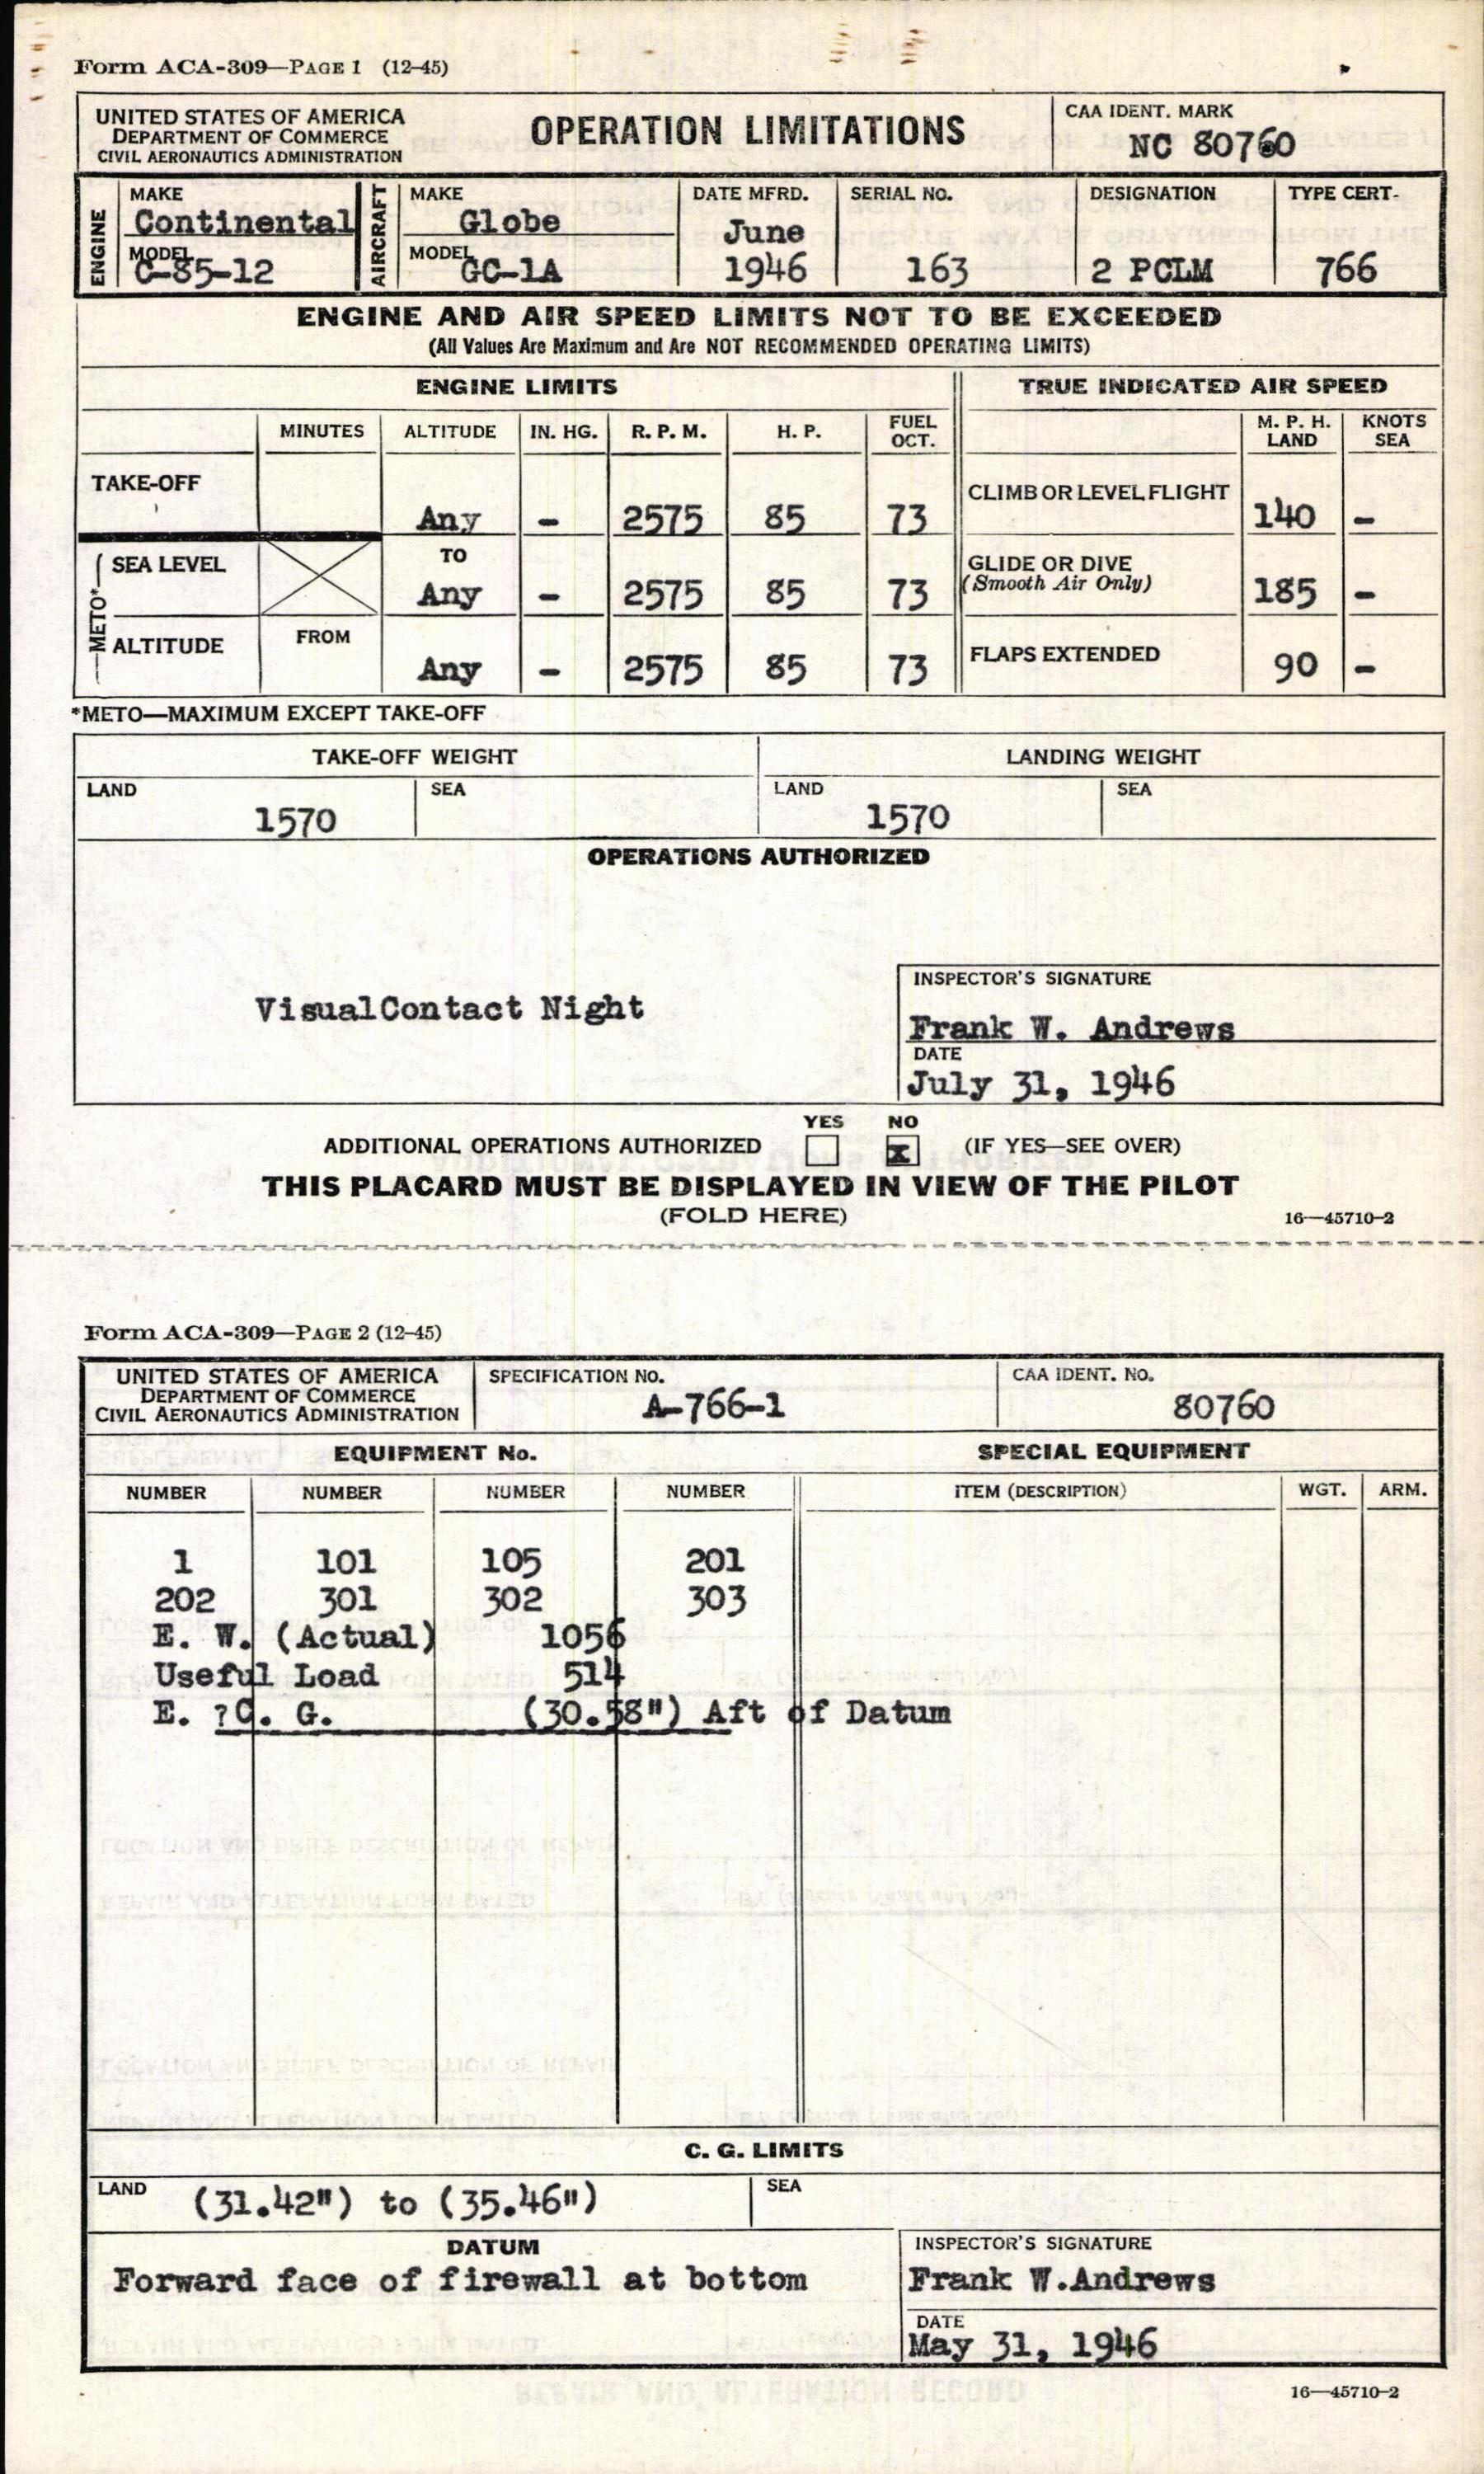 Form ACA-309—PAGE 1 (12-45)
UNITED STATES OF AMERICA
DEPARTMENT OF COMMERCE
CIVIL AERONAUTICS ADMINISTRATION
OPERATION LIMITATIONS
CAA IDENT. MARK
NC 80760
ENGINE
MAKE
Continental
MODEL
C-85-12
AIRCRAFT
MAKE
Globe
MODEL
GC-1A
DATE MFRD.
June
1946
SERIAL NO.
163
DESIGNATION
2 PCLM
TYPE CERT.
766
ENGINE AND AIR SPEED LIMITS NOT TO BE EXCEEDED
(All Values Are Maximum and Are NOT RECOMMENDED OPERATING LIMITS)
ENGINE LIMITS
TRUE INDICATED AIR SPEED
MINUTES ALTITUDE IN. HG. R. P. M. H. P. FUEL OCT. M. P. H. LAND KNOTS SEA
TAKE-OFF Any - 2575 85 73 CLIMB OR LEVEL FLIGHT 140 -
METO*
SEA LEVEL TO Any - 2575 85 73 GLIDE OR DIVE (Smooth Air Only) 185 -
ALTITUDE FROM Any - 2575 85 73 FLAPS EXTENDED 90 -
*METO—MAXIMUM EXCEPT TAKE-OFF
TAKE-OFF WEIGHT LANDING WEIGHT
LAND SEA LAND SEA
1570 1570
OPERATIONS AUTHORIZED
VisualContact Night
INSPECTOR'S SIGNATURE
Frank W. Andrews
DATE
July 31, 1946
YES NO
ADDITIONAL OPERATIONS AUTHORIZED x (IF YES—SEE OVER)
THIS PLACARD MUST BE DISPLAYED IN VIEW OF THE PILOT
(FOLD HERE)
16—45710-2
Form ACA-309—PAGE 2 (12-45)
UNITED STATES OF AMERICA
DEPARTMENT OF COMMERCE
CIVIL AERONAUTICS ADMINISTRATION
SPECIFICATION NO.
A-766-1
CAA IDENT. NO.
80760
EQUIPMENT No. SPECIAL EQUIPMENT
NUMBER NUMBER NUMBER NUMBER ITEM (DESCRIPTION) WGT. ARM.
1 101 105 201
202 301 302 303
E. W. (Actual) 1056
Useful Load 514
E. ?C. G. (30.58") Aft of Datum
C. G. LIMITS
LAND (31.42") to (35.46") SEA
DATUM
Forward face of firewall at bottom
INSPECTOR'S SIGNATURE
Frank W.Andrews
DATE
May 31, 1946
16—45710-2